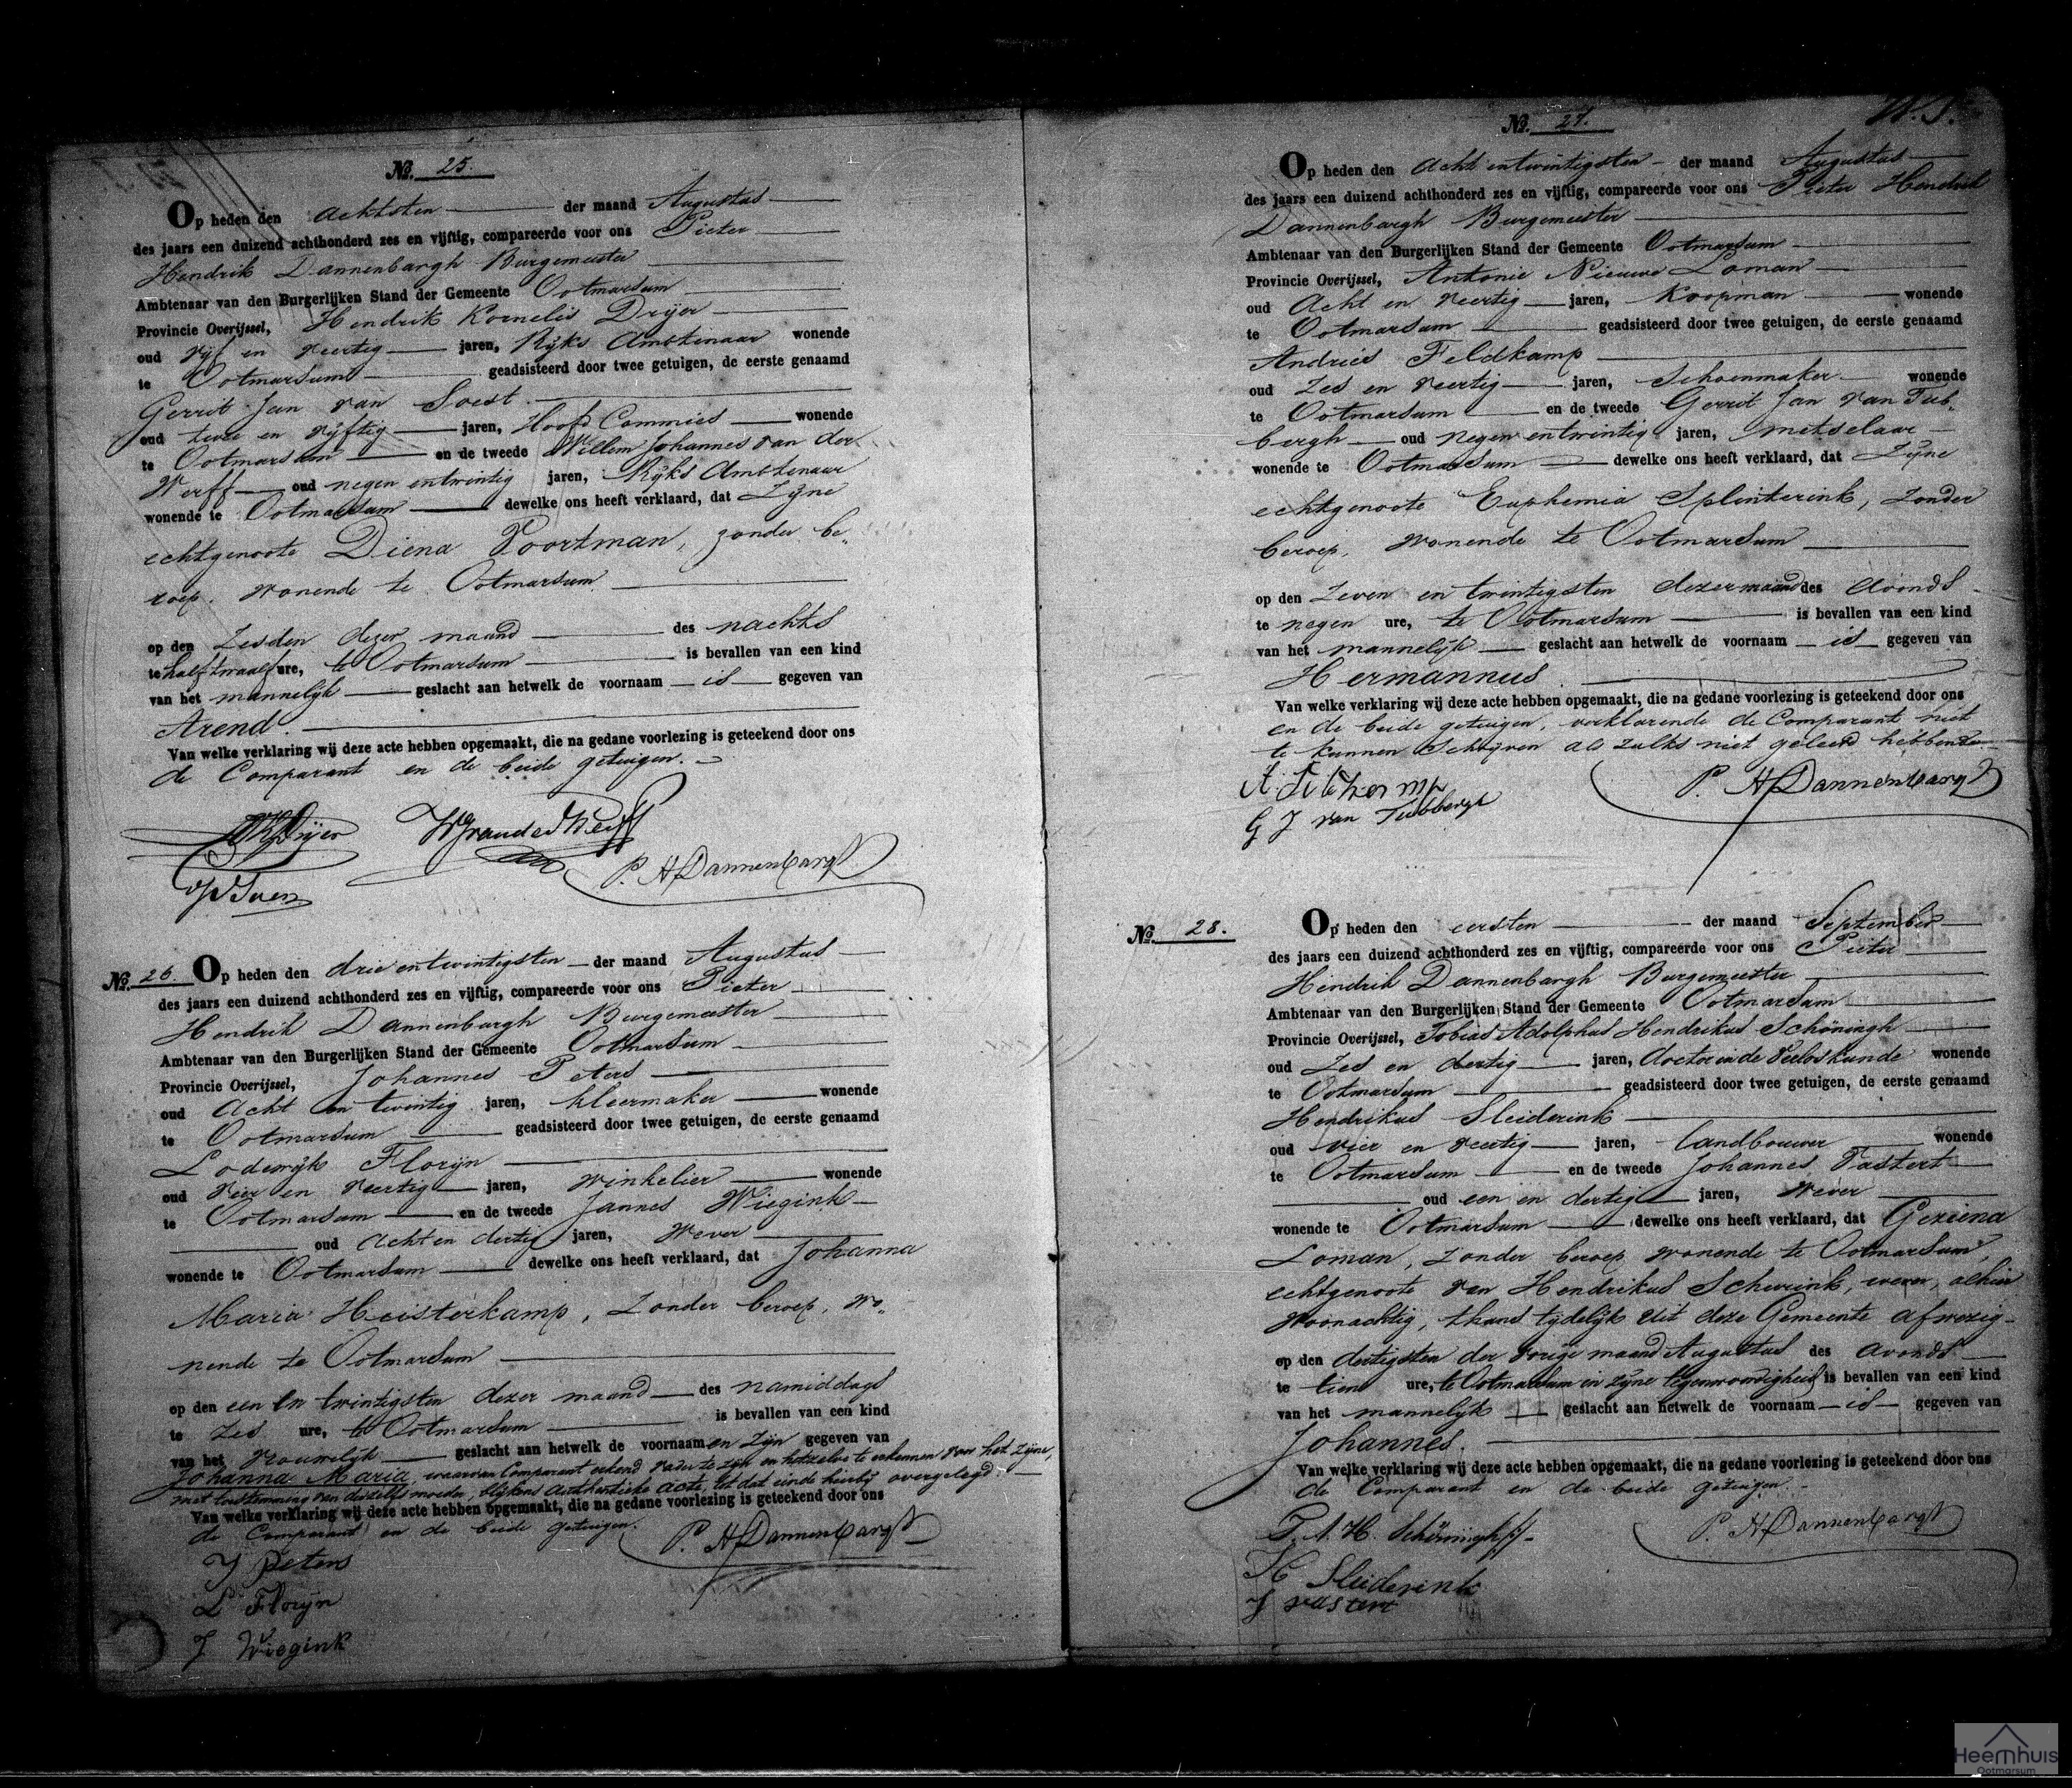 No. 25.
Op heden den achtsten der maand Augustus
des jaars een duizend achthonderd zes en vijftig, compareerde voor ons Pieter
Hendrik Dannenbargh Burgemeester
Ambtenaar van den Burgerlijken Stand der Gemeente Ootmarsum
Provincie Overijssel, Hendrik Kornelis Drijer
oud vijf en veertig jaren, Rijks Ambtenaar wonende
te Ootmarsum geadsisteerd door twee getuigen, de eerste genaamd
Gerrit Jan van Soest.
oud twee en vijftig jaren, Hoofd Commies wonende
te Ootmarsum en de tweede Willem Johannes van der
Werff oud negen entwintig jaren, Rijks Ambtenaar
wonende te Ootmarsum dewelke ons heeft verklaard, dat Zijne
echtgenoote Diena Poortman, zonder be„
roep, wonende te Ootmarsum
op den Zesden dezer maand des nachts
te half twaalf ure, te Ootmarsum is bevallen van een kind
van het mannelijk geslacht aan hetwelk de voornaam is gegeven van
Arend.
Van welke verklaring wij deze acte hebben opgemaakt, die na gedane voorlezing is geteekend door ons
de Comparant en de beide getuigen.
HKDrijer WJvanderWerff
P. H Dannenbargh
No. 26. Op heden den drie entwintigsten der maand Augustus
des jaars een duizend achthonderd zes en vijftig, compareerde voor ons Pieter
Hendrik Dannenbargh Burgemeester
Ambtenaar van den Burgerlijken Stand der Gemeente Ootmarsum
Provincie Overijssel, Johannes Peters
oud Acht en twintig jaren, kleermaker wonende
te Ootmarsum geadsisteerd door twee getuigen, de eerste genaamd
Lodewijk Florijn
oud vier en veertig jaren, winkelier wonende
te Ootmarsum en de tweede Jannes Wiegink
oud acht en dertig jaren, wever
wonende te Ootmarsum dewelke ons heeft verklaard, dat Johanna
Maria Heisterkamp, zonder beroep, wo„
nende te Ootmarsum
op den een en twintigsten dezer maand des namiddags
te Zes ure, te Ootmarsum is bevallen van een kind
van het vrouwelijk geslacht aan hetwelk de voornaamen zijn gegeven van
Johanna Maria, waarvan Comparant erkend vader te zijn en hetzelve te erkennen voor het zijne,
met toestemming van deszelfs moeder, blijkens Authentieke acte, tot dat einde hierbij overgelegd.
Van welke verklaring wij deze acte hebben opgemaakt, die na gedane voorlezing is geteekend door ons
de Comparant en de beide getuigen.
J Peters P. H Dannenbargh
L Florijn
J Wiegink
No. 27.
Op heden den Acht entwintigsten der maand Augustus
des jaars een duizend achthonderd zes en vijftig, compareerde voor ons Pieter Hendrik
Dannenbargh Burgemeester
Ambtenaar van den Burgerlijken Stand der Gemeente Ootmarsum
Provincie Overijssel, Antonie Nieuwe Loman
oud Acht en veertig jaren, koopman wonende
te Ootmarsum geadsisteerd door twee getuigen, de eerste genaamd
Andries Feldkamp
oud Zes en veertig jaren, schoenmaker wonende
te Ootmarsum en de tweede Gerrit Jan van Tub„
bergh oud negen entwintig jaren, metselaar
wonende te Ootmarsum dewelke ons heeft verklaard, dat Zijne
echtgenoote Euphemia Splinterink, zonder
beroep, wonende te Ootmarsum
op den Zeven en twintigsten dezer maand des avonds
te negen ure, te Ootmarsum is bevallen van een kind
van het mannelijk geslacht aan hetwelk de voornaam is gegeven van
Hermannus
Van welke verklaring wij deze acte hebben opgemaakt, die na gedane voorlezing is geteekend door ons
en de beide getuigen, verklarende de Comparant niet
te kunnen schrijven als zulks niet geleerd hebbende
P. H Dannenbargh
G J van Tubbergh
No. 28.
Op heden den eersten der maand September
des jaars een duizend achthonderd zes en vijftig, compareerde voor ons Pieter
Hendrik Dannenbargh Burgemeester
Ambtenaar van den Burgerlijken Stand der Gemeente Ootmarsum
Provincie Overijssel, Tobias Adolphus Hendrikus Schöningh
oud Zes en dertig jaren, doctor in de verloskunde wonende
te Ootmarsum geadsisteerd door twee getuigen, de eerste genaamd
Hendrikus Sleiderink
oud vier en veertig jaren, landbouwer wonende
te Ootmarsum en de tweede Johannes Vastert
oud een en dertig jaren, wever
wonende te Ootmarsum dewelke ons heeft verklaard, dat Geziena
Loman, zonder beroep wonende te Ootmarsum,
echtgenoote van Hendrikus Scheurink, wever, alhier
woonachtig, thans tijdelijk uit deze Gemeente afwezig
op den dertigsten der vorige maand Augustus des avonds
te tien ure, te Ootmarsum in zijne tegenwoordigheid is bevallen van een kind
van het mannelijk geslacht aan hetwelk de voornaam is gegeven van
Johannes.
Van welke verklaring wij deze acte hebben opgemaakt, die na gedane voorlezing is geteekend door ons
de Comparant en de beide getuigen.
T. A. H. Schöningh P. H Dannenbargh
H Sleiderink
J Vastert
Heemhuis
Ootmarsum